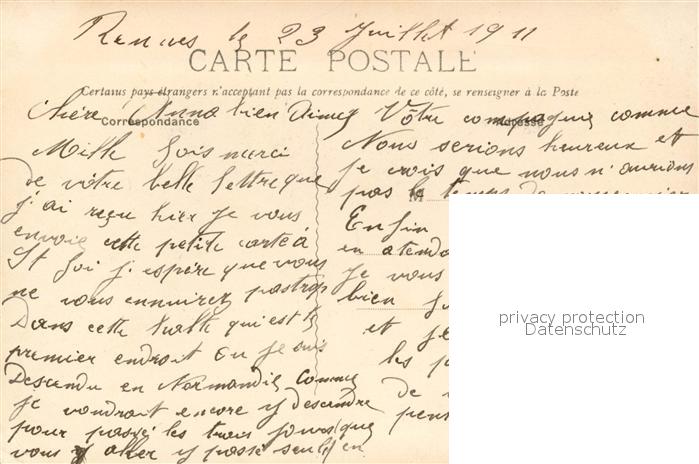 Rennes le 23 Juillet 1911
CARTE POSTALE
Certains pays étrangers n'acceptant pas la correspondance de ce côté, se renseigner à la Poste
Chère Anna bien Aimée
Correspondance
Mille fois merci
de vôtre belle lettre que
j'ai reçu hier je vous
envoie cette petite carte à
St j'espère que vous
ne vous ennuirez pas trop
Dans cette halte qui est le
premier endroit ou je suis
Descendu en Normandie comme
je voudrait encore y descendre
pour passé les trois jours que
vous y aller y passé seule en
Vôtre compagnie comme
Adresse
Nous serions heureux et
je crois que nous n'aurions
pas le temps de
M
Enfin
en atenda
je vous
bien
et je
les p
de v
pens
privacy protection
Datenschutz